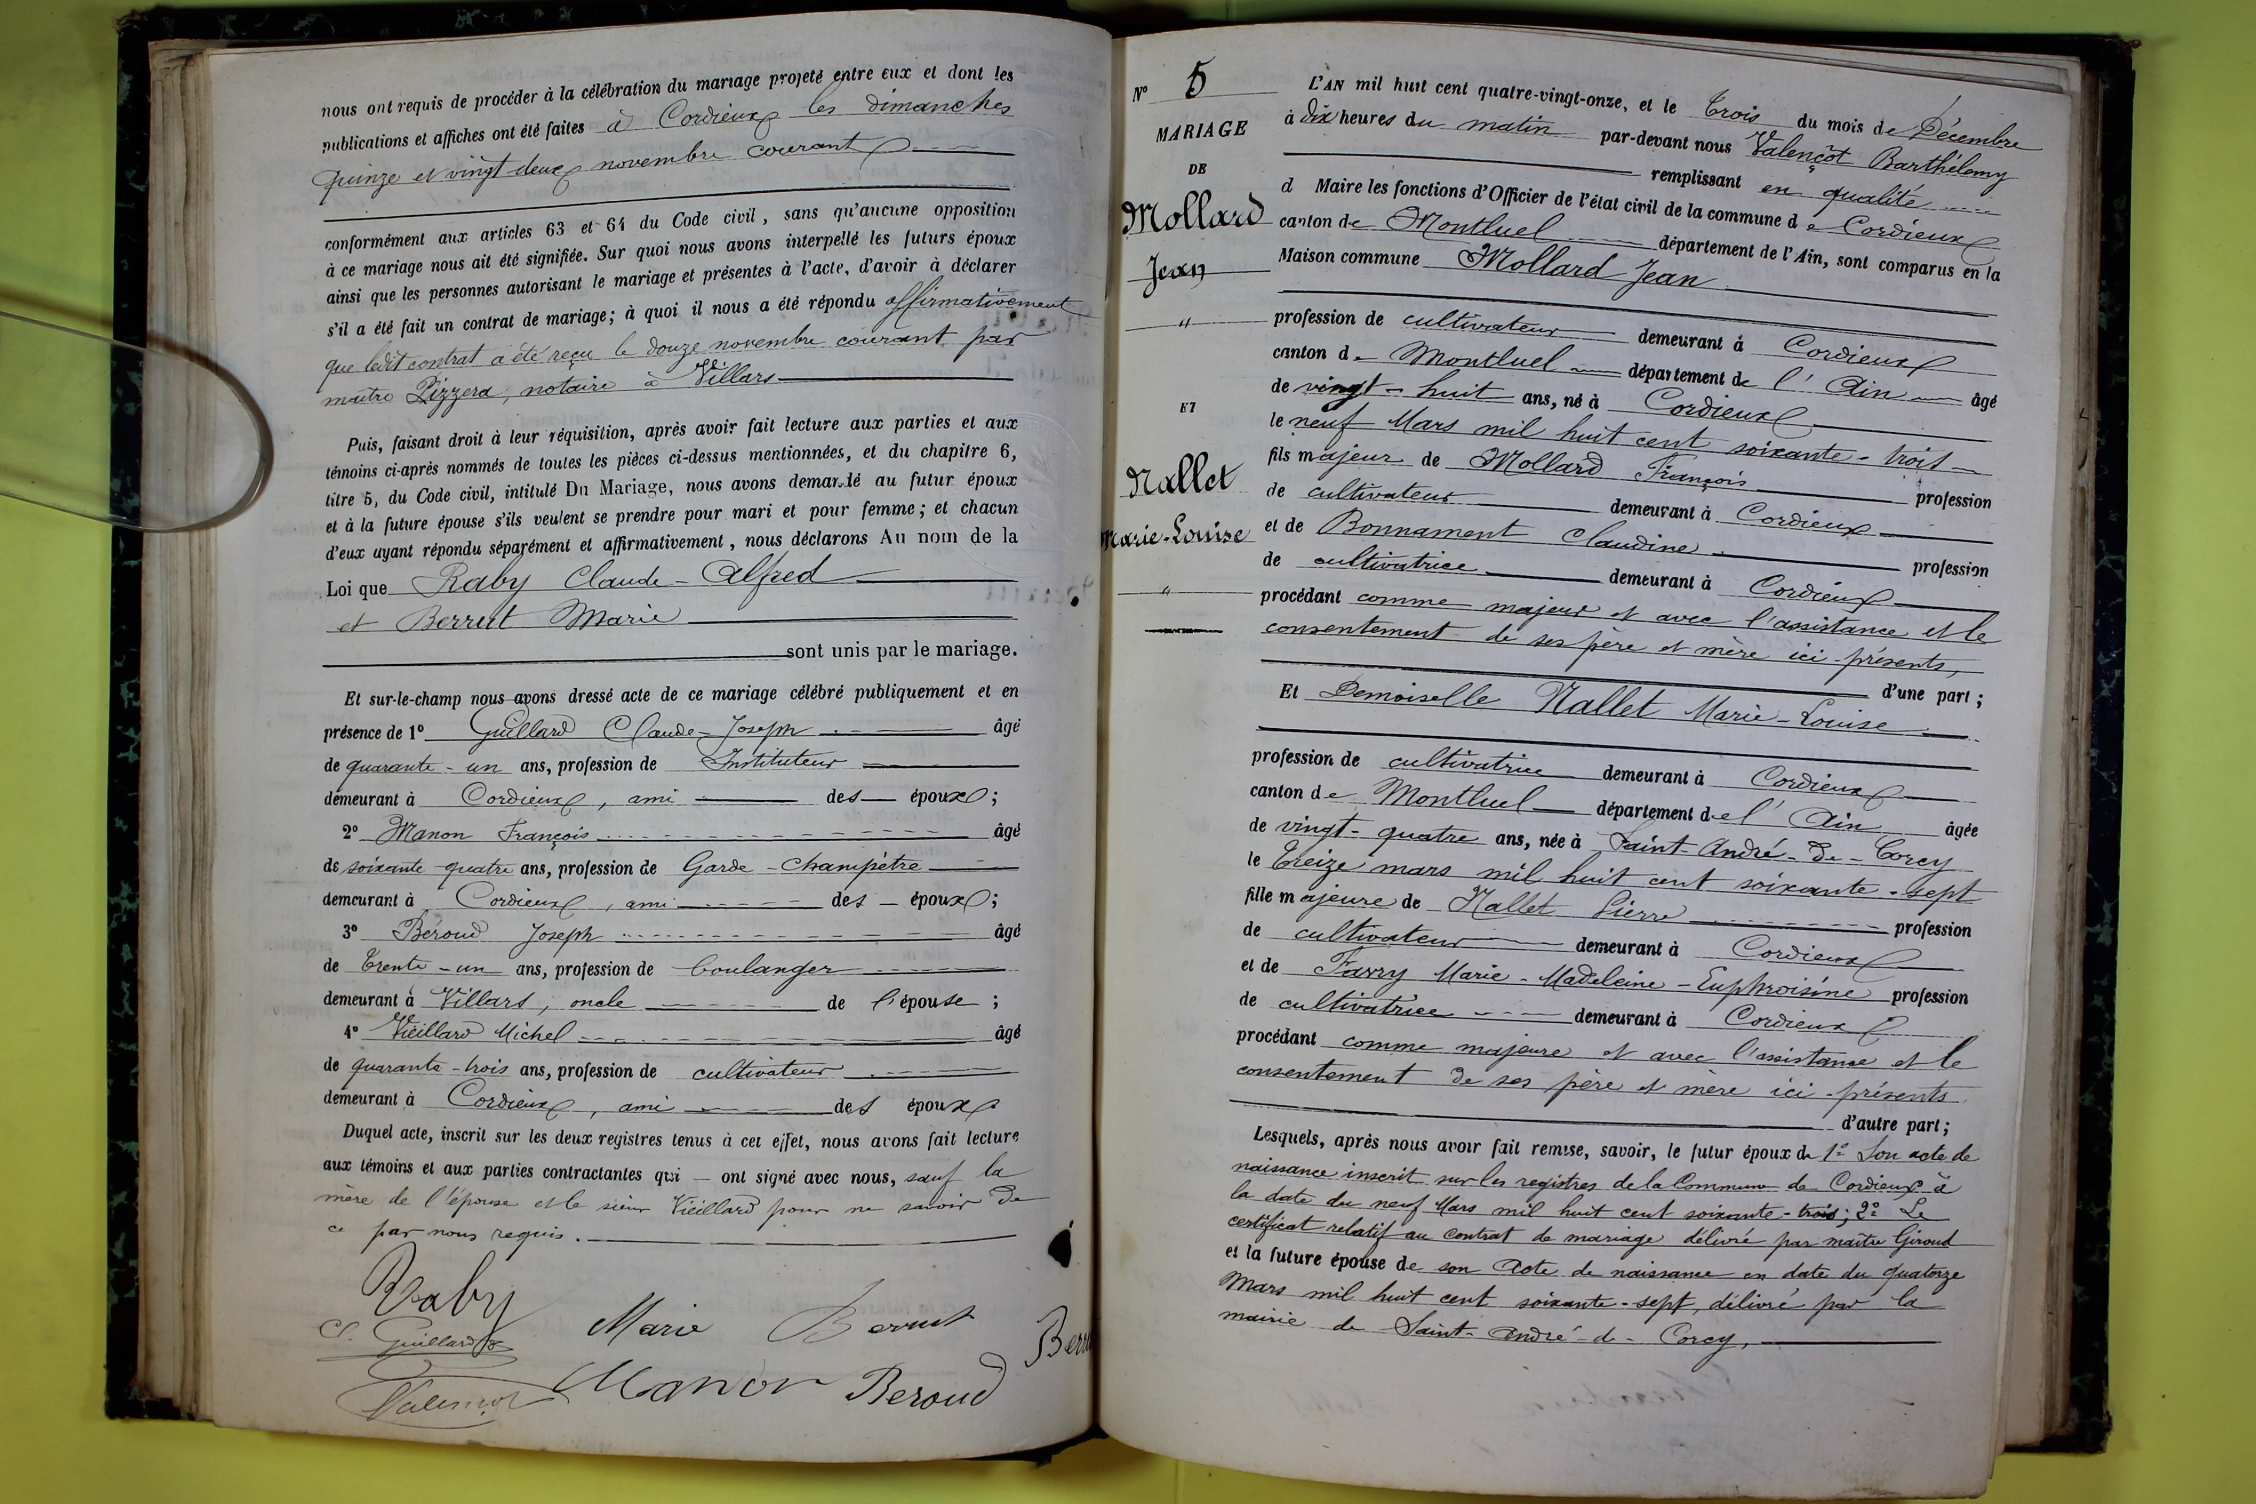 nous ont requis de procéder à la célébration du mariage projeté entre eux et dont les
publications et affiches ont été faites à Cordieux les dimanches
quinze et vingt-deux novembre courant
conformément aux articles 63 et 64 du Code civil, sans qu'aucune opposition
à ce mariage nous ait été signifiée. Sur quoi nous avons interpellé les futurs époux
ainsi que les personnes autorisant le mariage et présentes à l'acte, d'avoir à déclarer
s'il a été fait un contrat de mariage; à quoi il nous a été répondu affirmativement
que ledit contrat a été reçu le douze novembre courant par
maître Pizzera, notaire à Villars
Puis, faisant droit à leur réquisition, après avoir fait lecture aux parties et aux
témoins ci-après nommés de toutes les pièces ci-dessus mentionnées, et du chapitre 6,
titre 5, du Code civil, intitulé Du Mariage, nous avons demandé au futur époux
et à la future épouse s'ils veulent se prendre pour mari et pour femme; et chacun
d'eux ayant répondu séparément et affirmativement, nous déclarons Au nom de la
Loi que Raby Claude-Alfred
et Berrut Marie
sont unis par le mariage.
Et sur-le-champ nous avons dressé acte de ce mariage célébré publiquement et en
présence de 1° Guillard Claude-Joseph âgé
de quarante-un ans, profession de Instituteur
demeurant à Cordieux, ami des époux;
2° Manon François âgé
de soixante-quatre ans, profession de Garde-Champêtre
demeurant à Cordieux, ami des époux;
3° Béroud Joseph âgé
de Trente-un ans, profession de boulanger
demeurant à Villars, oncle de l'épouse;
4° Vieillard Michel âgé
de quarante-trois ans, profession de cultivateur
demeurant à Cordieux, ami des époux
Duquel acte, inscrit sur les deux registres tenus à cet effet, nous avons fait lecture
aux témoins et aux parties contractantes qui ont signé avec nous, sauf la
mère de l'épouse et le sieur Vieillard pour ne savoir de
ce par nous requis.
Raby
Cl. Guillard Marie Berrut Berru
Valençot Manon Beroud
N° 5
MARIAGE
DE
Mollard
Jean
"
ET
Nallet
Marie-Louise
"
L'AN mil huit cent quatre-vingt-onze, et le Trois du mois de Décembre
à Dix heures du matin par-devant nous Valençot Barthélemy
remplissant en qualité
d Maire les fonctions d'Officier de l'état civil de la commune de Cordieux
canton de Montluel département de l'Ain, sont comparus en la
Maison commune Mollard Jean
profession de cultivateur demeurant à Cordieux
canton de Montluel département de l'Ain âgé
de vingt-huit ans, né à Cordieux
le neuf Mars mil huit cent soixante-trois
fils majeur de Mollard François profession
de cultivateur demeurant à Cordieux
et de Bonnament Claudine profession
de cultivatrice demeurant à Cordieux
procédant comme majeur et avec l'assistance et le
consentement de ses père et mère ici présents,
d'une part;
Et Demoiselle Nallet Marie-Louise
profession de cultivatrice demeurant à Cordieux
canton de Montluel département de l'Ain âgée
de vingt-quatre ans, née à Saint-André-de-Corcy
le Treize mars mil huit cent soixante-sept
fille majeure de Nallet Pierre profession
de cultivateur demeurant à Cordieux
et de Favry Marie-Madeleine-Euphroisine profession
de cultivatrice demeurant à Cordieux
procédant comme majeure et avec l'assistance et le
consentement de ses père et mère ici-présents
d'autre part;
Lesquels, après nous avoir fait remise, savoir, le futur époux de 1° Son acte de
naissance inscrit sur les registres de la Commune de Cordieux à
la date du neuf Mars mil huit cent soixante-trois; 2° Le
certificat relatif au contrat de mariage délivré par maître Giroud
et la future épouse de son Acte de naissance en date du quatorze
Mars mil huit cent soixante-sept, délivré par la
mairie de Saint-André-de-Corcy,